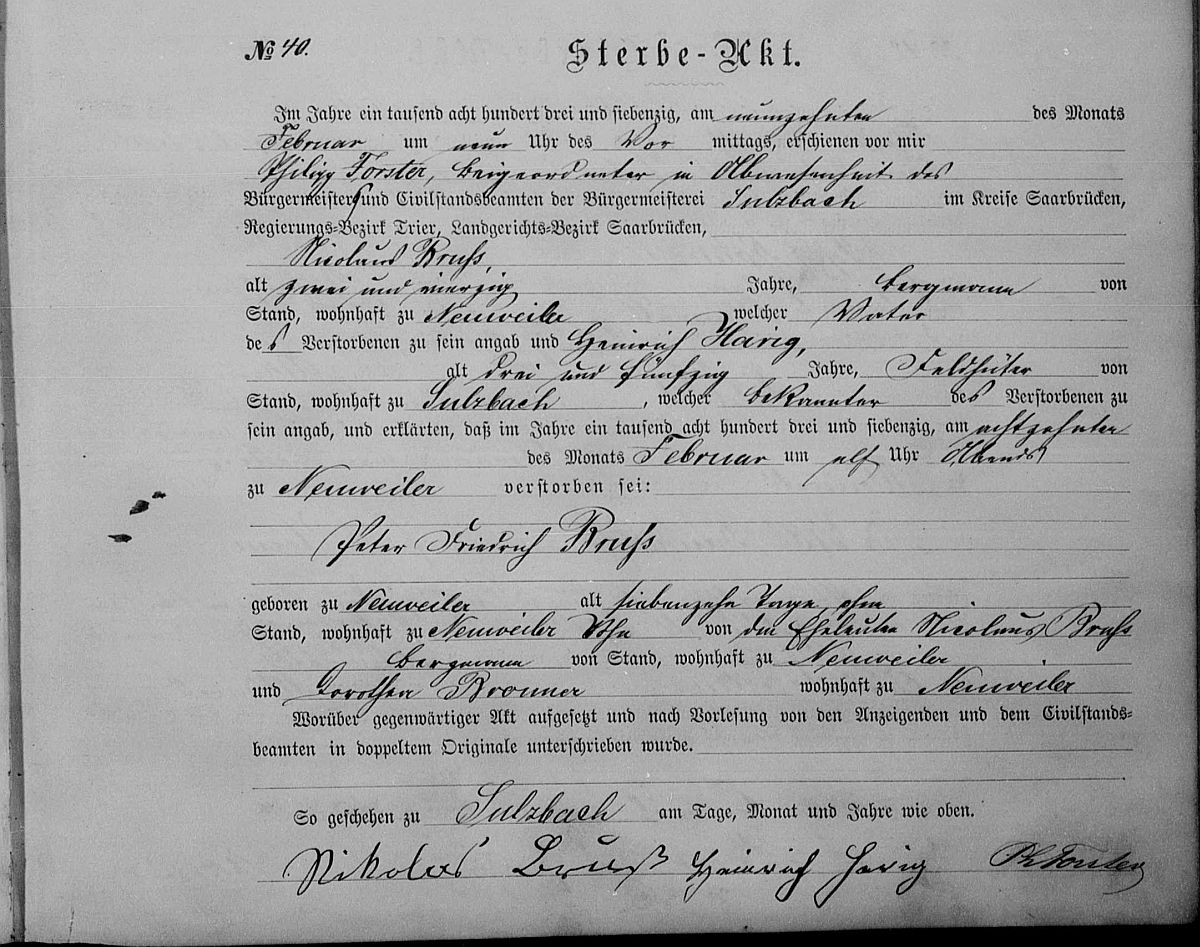 № 40.
Sterbe-Akt.
Im Jahre ein tausend acht hundert drei und siebenzig, am neunzehnten des Monats
Februar um neun Uhr des Vor mittags, erschienen vor mir
Philipp Forster, Beigeordneter in Abwesenheit des
Bürgermeisters und Civilstandsbeamten der Bürgermeisterei Sulzbach im Kreise Saarbrücken,
Regierungs-Bezirk Trier, Landgerichts-Bezirk Saarbrücken,
Nicolaus Bruß,
alt zwei und vierzig Jahre, Bergmann von
Stand, wohnhaft zu Neuweiler welcher Vater
des Verstorbenen zu sein angab und Heinrich Harig,
alt drei und fünfzig Jahre, Feldhüter von
Stand, wohnhaft zu Sulzbach, welcher Bekannter des Verstorbenen zu
sein angab, und erklärten, daß im Jahre ein tausend acht hundert drei und siebenzig, am achtzehnten
des Monats Februar um elf Uhr Abends
zu Neuweiler verstorben sei:
Peter Friedrich Bruß
geboren zu Neuweiler alt siebenzehn Tage, ohne
Stand, wohnhaft zu Neuweiler Sohn von den Eheleuten Nicolaus Bruß
Bergmann von Stand, wohnhaft zu Neuweiler
und Dorothea Bronner wohnhaft zu Neuweiler
Worüber gegenwärtiger Akt aufgesetzt und nach Vorlesung von den Anzeigenden und dem Civilstands-
beamten in doppeltem Originale unterschrieben wurde.
So geschehen zu Sulzbach am Tage, Monat und Jahre wie oben.
Nikolas Bruß Heinrich Harig Ph Forster